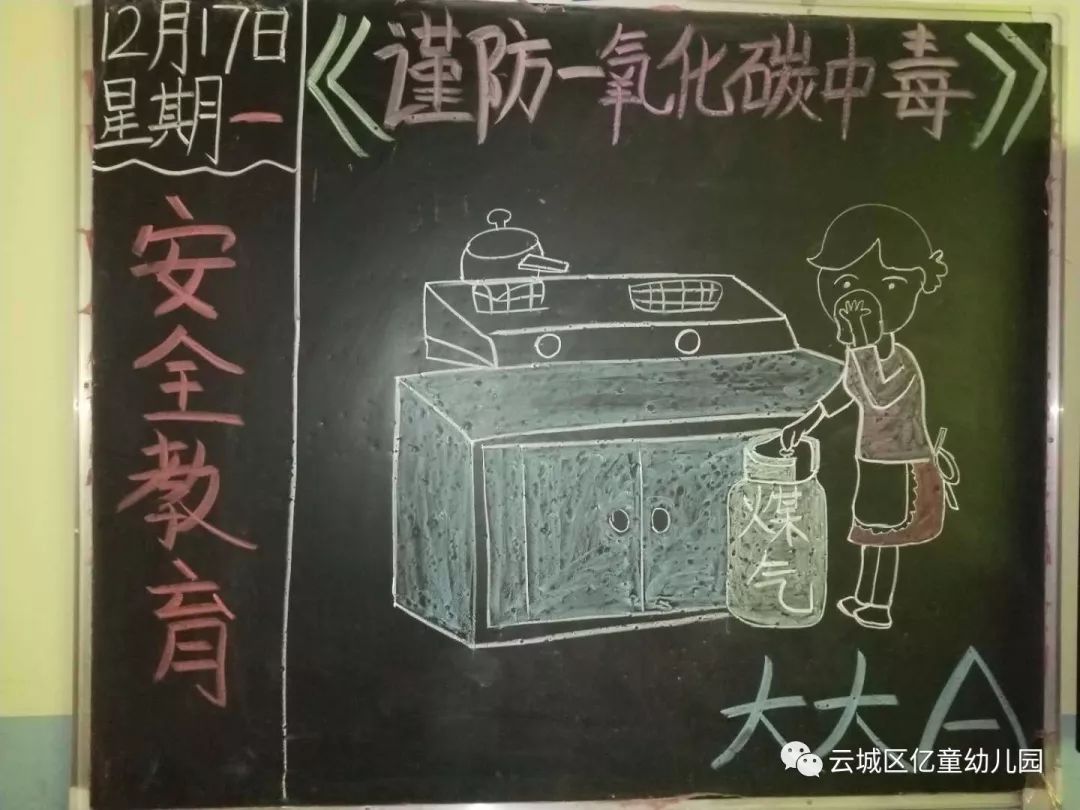 12月17日
星期一
安全教育
《谨防一氧化碳中毒》
煤气
大大A
云城区亿童幼儿园